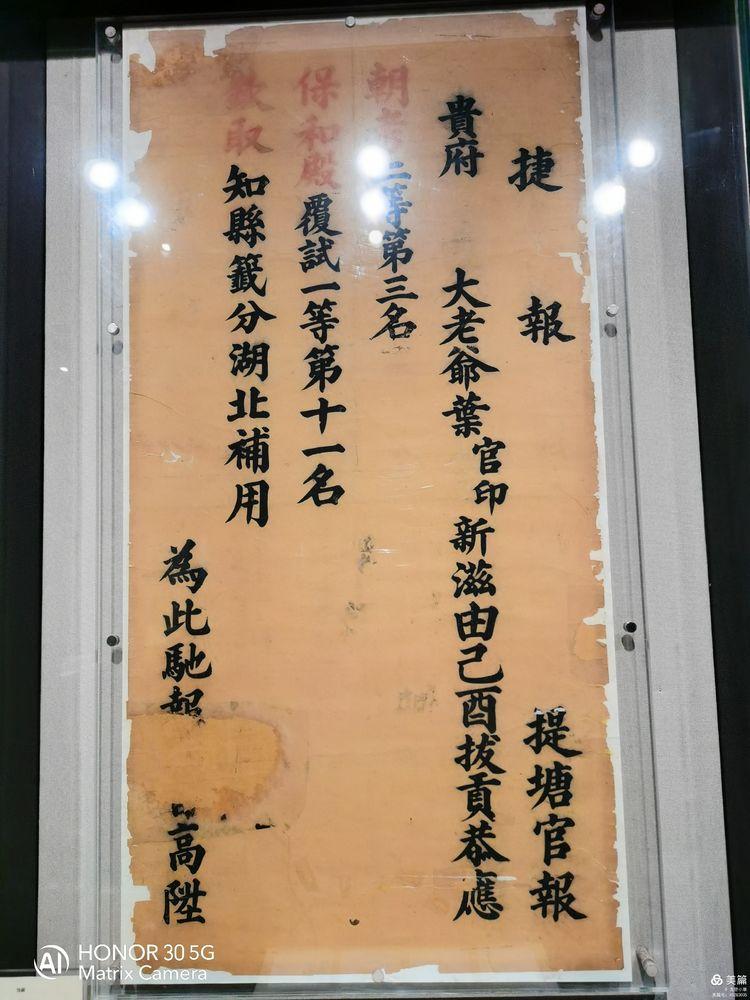 捷報 提塘官報
貴府 大老爺葉官印新滋由己酉拔貢恭應
朝考二等第三名
保和殿覆試一等第十一名
欽取知縣籤分湖北補用
為此馳報
高陞
HONOR 30 5G
Matrix Camera
AI
美篇